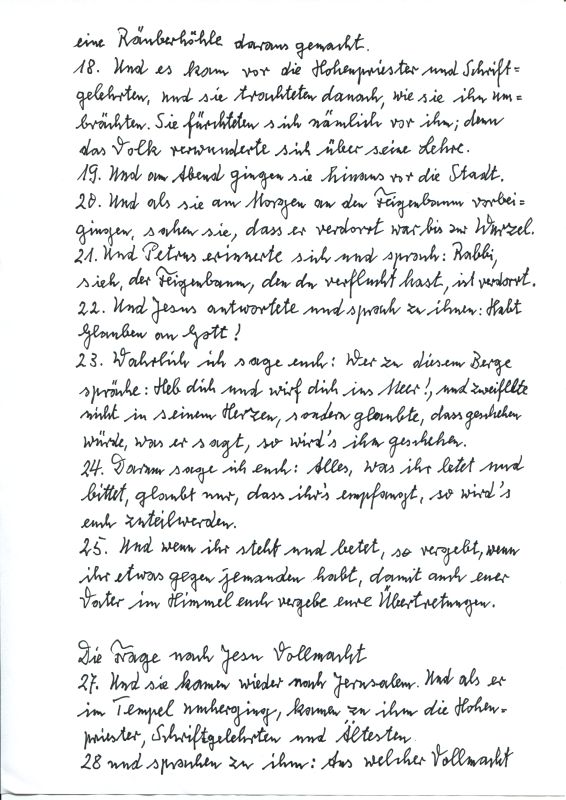 eine Räuberhöhle daraus gemacht.
18. Und es kam vor die Hohenpriester und Schrift=
gelehrten, und sie trachteten danach, wie sie ihn um=
brächten. Sie fürchteten sich nämlich vor ihm; denn
das Volk verwunderte sich über seine Lehre.
19. Und am Abend gingen sie hinaus vor die Stadt.
20. Und als sie am Morgen an den Feigenbaum vorbei=
gingen, sahen sie, dass er verdorrt war bis zur Wurzel.
21. Und Petrus erinnerte sich und sprach: Rabbi,
sieh, der Feigenbaum, den du verflucht hast, ist verdorrt.
22. Und Jesus antwortete und sprach zu ihnen: Habt
Glauben an Gott!
23. Wahrlich ich sage euch: Wer zu diesem Berge
spräche: Heb dich und wirf dich ins Meer!, und zweifelte
nicht in seinem Herzen, sondern glaubte, dass geschehen
würde, was er sagt, so wird's ihm geschehen.
24. Darum sage ich euch: Alles, was ihr betet und
bittet, glaubt nur, dass ihr's empfangt, so wird's
euch zuteilwerden.
25. Und wenn ihr steht und betet, so vergebt, wenn
ihr etwas gegen jemanden habt, damit auch euer
Vater im Himmel euch vergebe eure Übertretungen.
Die Frage nach Jesu Vollmacht
27. Und sie kamen wieder nach Jerusalem. Und als er
im Tempel umherging, kamen zu ihm die Hohen=
priester, Schriftgelehrten und Ältesten
28 und sprachen zu ihm: Aus welcher Vollmacht